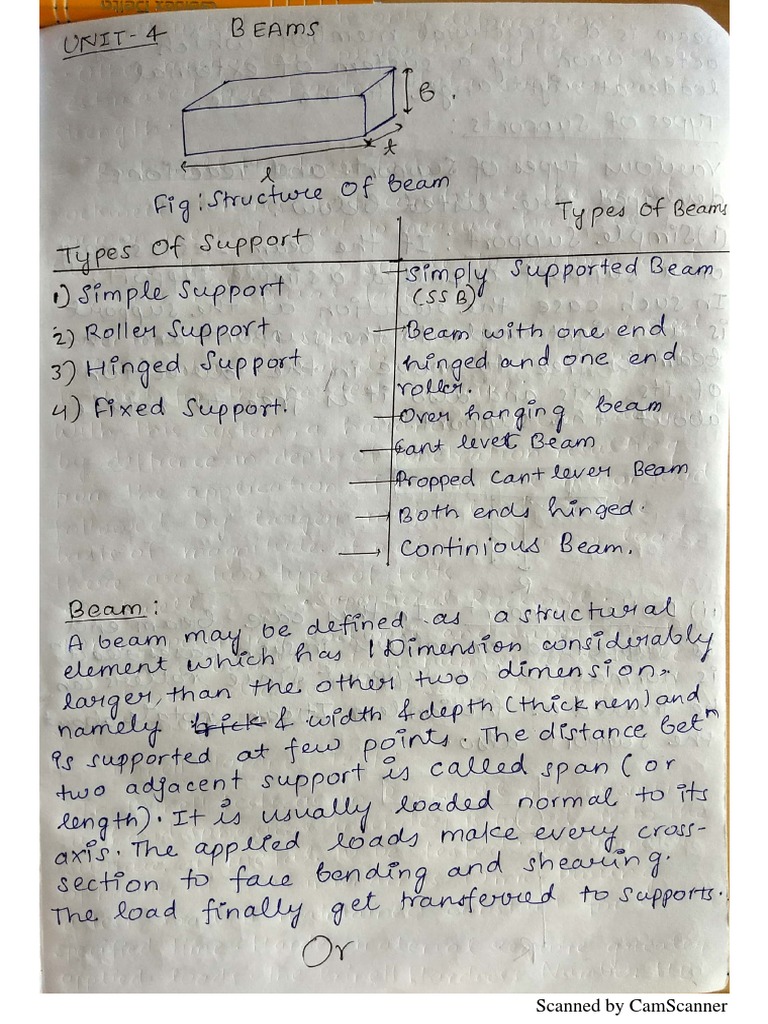 UNIT-4 BEAMS
B.
t
l
Fig: Structure Of Beam
Types Of Support
1) Simple Support
2) Roller Support
3) Hinged Support
4) Fixed Support.
Types Of Beams
Simply Supported Beam
(SSB)
Beam with one end
hinged and one end
roller.
Over hanging beam
Cant lever Beam
Propped Cantlever Beam
Both ends hinged.
Continious Beam.
Beam:
A beam may be defined as a structural
element which has 1 Dimension considerably
larger, than the other two dimension,
namely & width & depth (thickness) and
is supported at few points. The distance betn
two adjacent support is called span (or
length). It is usually loaded normal to its
axis. The applied loads make every cross-
section to face bending and shearing.
The load finally get transferred to supports.
Or
Scanned by CamScanner